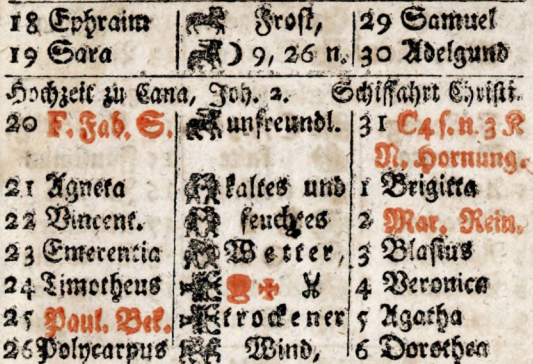 18 Ephraim Frost, 29 Samuel
19 Sara ☽ 9, 26 n. 30 Adelgund
Hochzeit zu Cana, Joh. 2. Schiffahrt Christi.
20 F. Fab. S. unfreundl. 31 C4 s. n. 3 K
N. Hornung.
21 Agneta kaltes und 1 Brigitta
22 Vincent. feuchtes 2 Mar. Rein.
23 Emerentia Wetter, 3 Blasius
24 Timotheus 4 Veronica
25 Paul. Bek. trockener 5 Agatha
26 Polycarpus Wind, 6 Dorothea